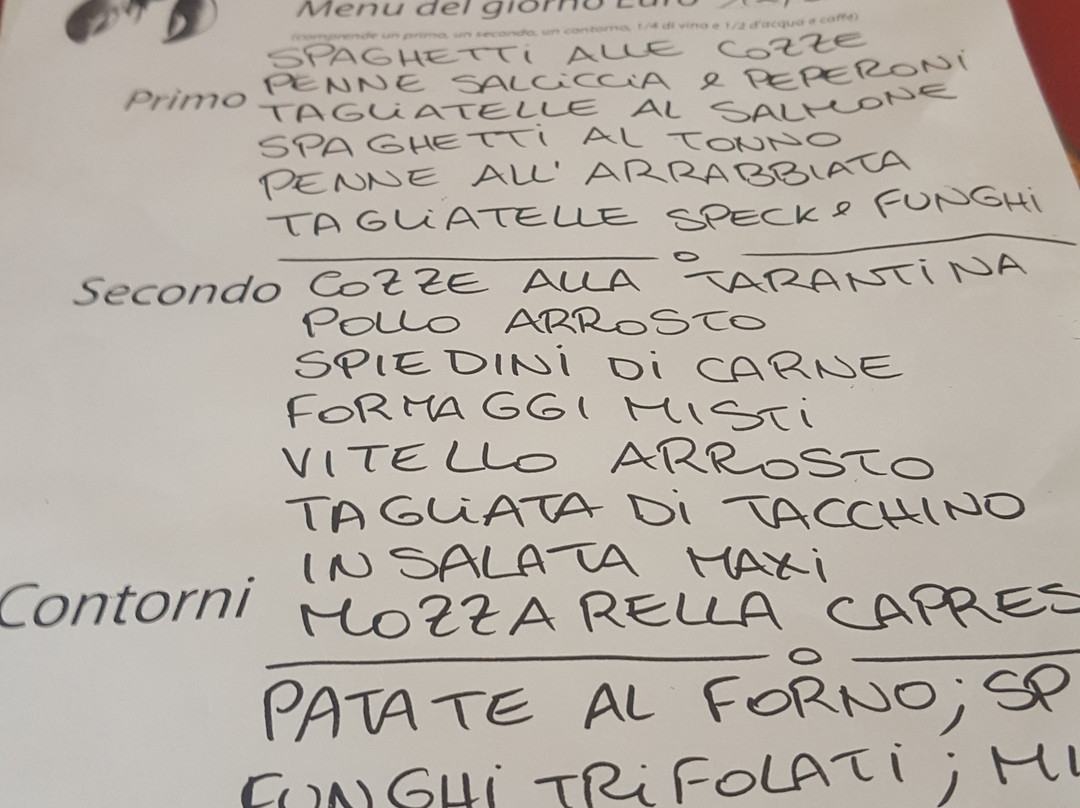 Menu del giorno Euro
(comprende un primo, un secondo, un contorno, 1/4 di vino e 1/2 d'acqua e caffè)
SPAGHETTI ALLE COZZE
PENNE SALCICCIA e PEPERONI
Primo TAGLIATELLE AL SALMONE
SPAGHETTI AL TONNO
PENNE ALL' ARRABBIATA
TAGLIATELLE SPECK e FUNGHI
Secondo COZZE ALLA TARANTINA
POLLO ARROSTO
SPIEDINI DI CARNE
FORMAGGI MISTI
VITELLO ARROSTO
TAGLIATA DI TACCHINO
INSALATA MAXI
Contorni MOZZARELLA CAPRES
PATATE AL FORNO; SP
FUNGHI TRIFOLATI; MI